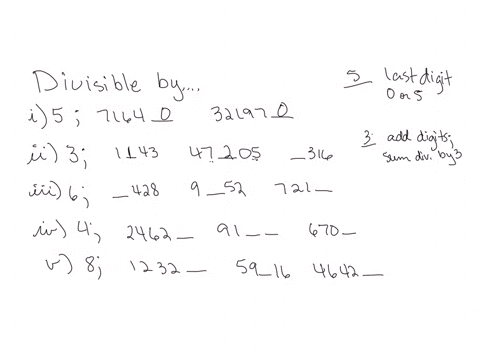 Divisible by...
i) 5; 7164_0_ 32197_0_
ii) 3; 1_1_43 47_2_05 _316
iii) 6; _428 9_52 721_
iv) 4; 2462_ 91_ _ 670_
v) 8; 1232_ 59_16 4642_
5 last digit
0 or 5
3: add digits;
sum div. by 3